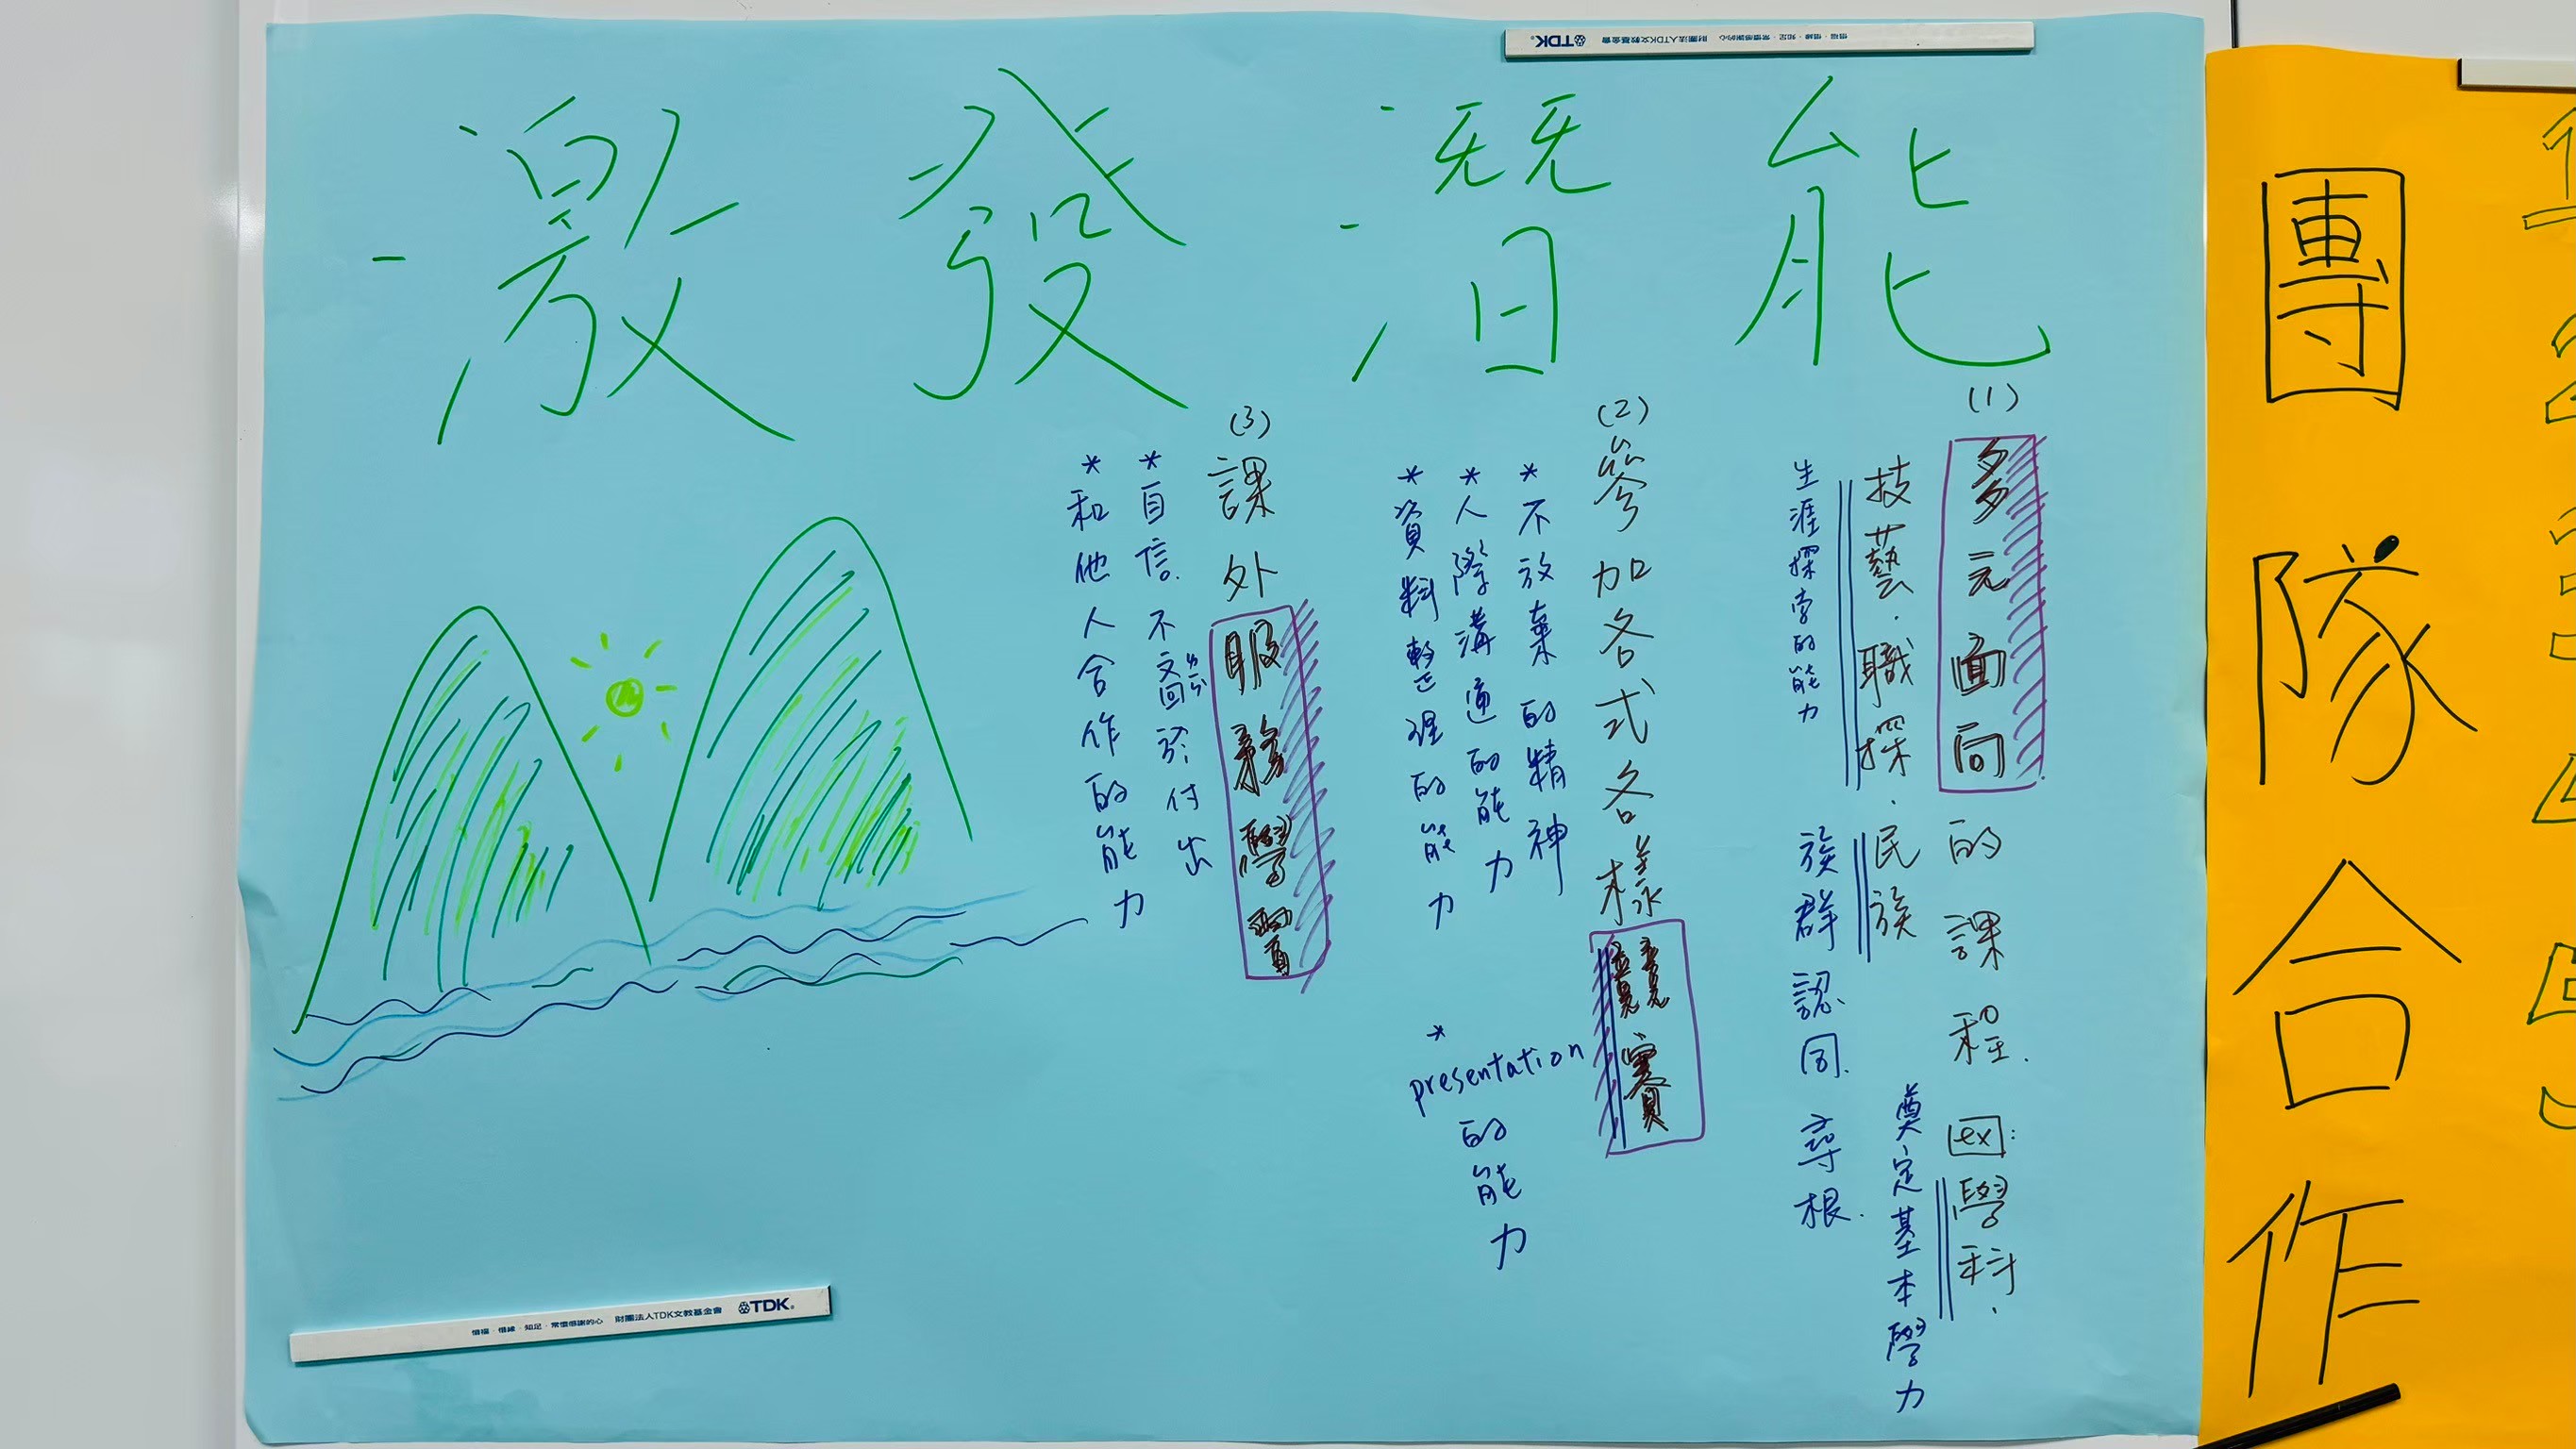 激發潛能
(1)
多元面向的課程. ex: 學科.
奠定基本學力
技藝.職探.民族
生涯探索的能力
族群認同.尋根.
(2)
參加各式各樣競賽
*不放棄的精神
*人際溝通的能力
*資料整理的能力
*presentation的能力
(3)
課外服務學習
*自信.不吝ㄌㄧㄣˋ於付出
*和他人合作的能力
惜福.惜緣.知足.常懷感謝的心 財團法人TDK文教基金會 TDK
惜福.惜緣.知足.常懷感謝的心 財團法人TDK文教基金會 TDK
團隊合作